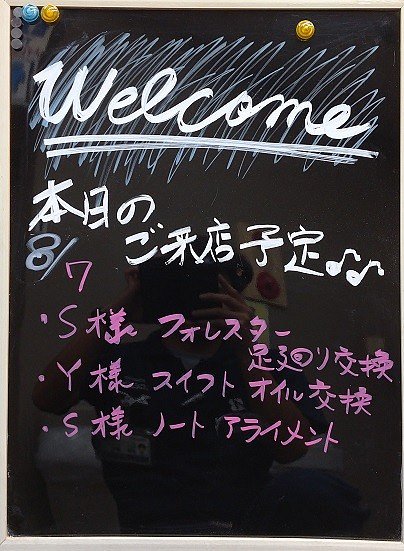 Welcome
本日の
ご来店予定♪♫
8/7
・S様 フォレスター
足廻り交換
・Y様 スイフト オイル交換
・S様 ノート アライメント